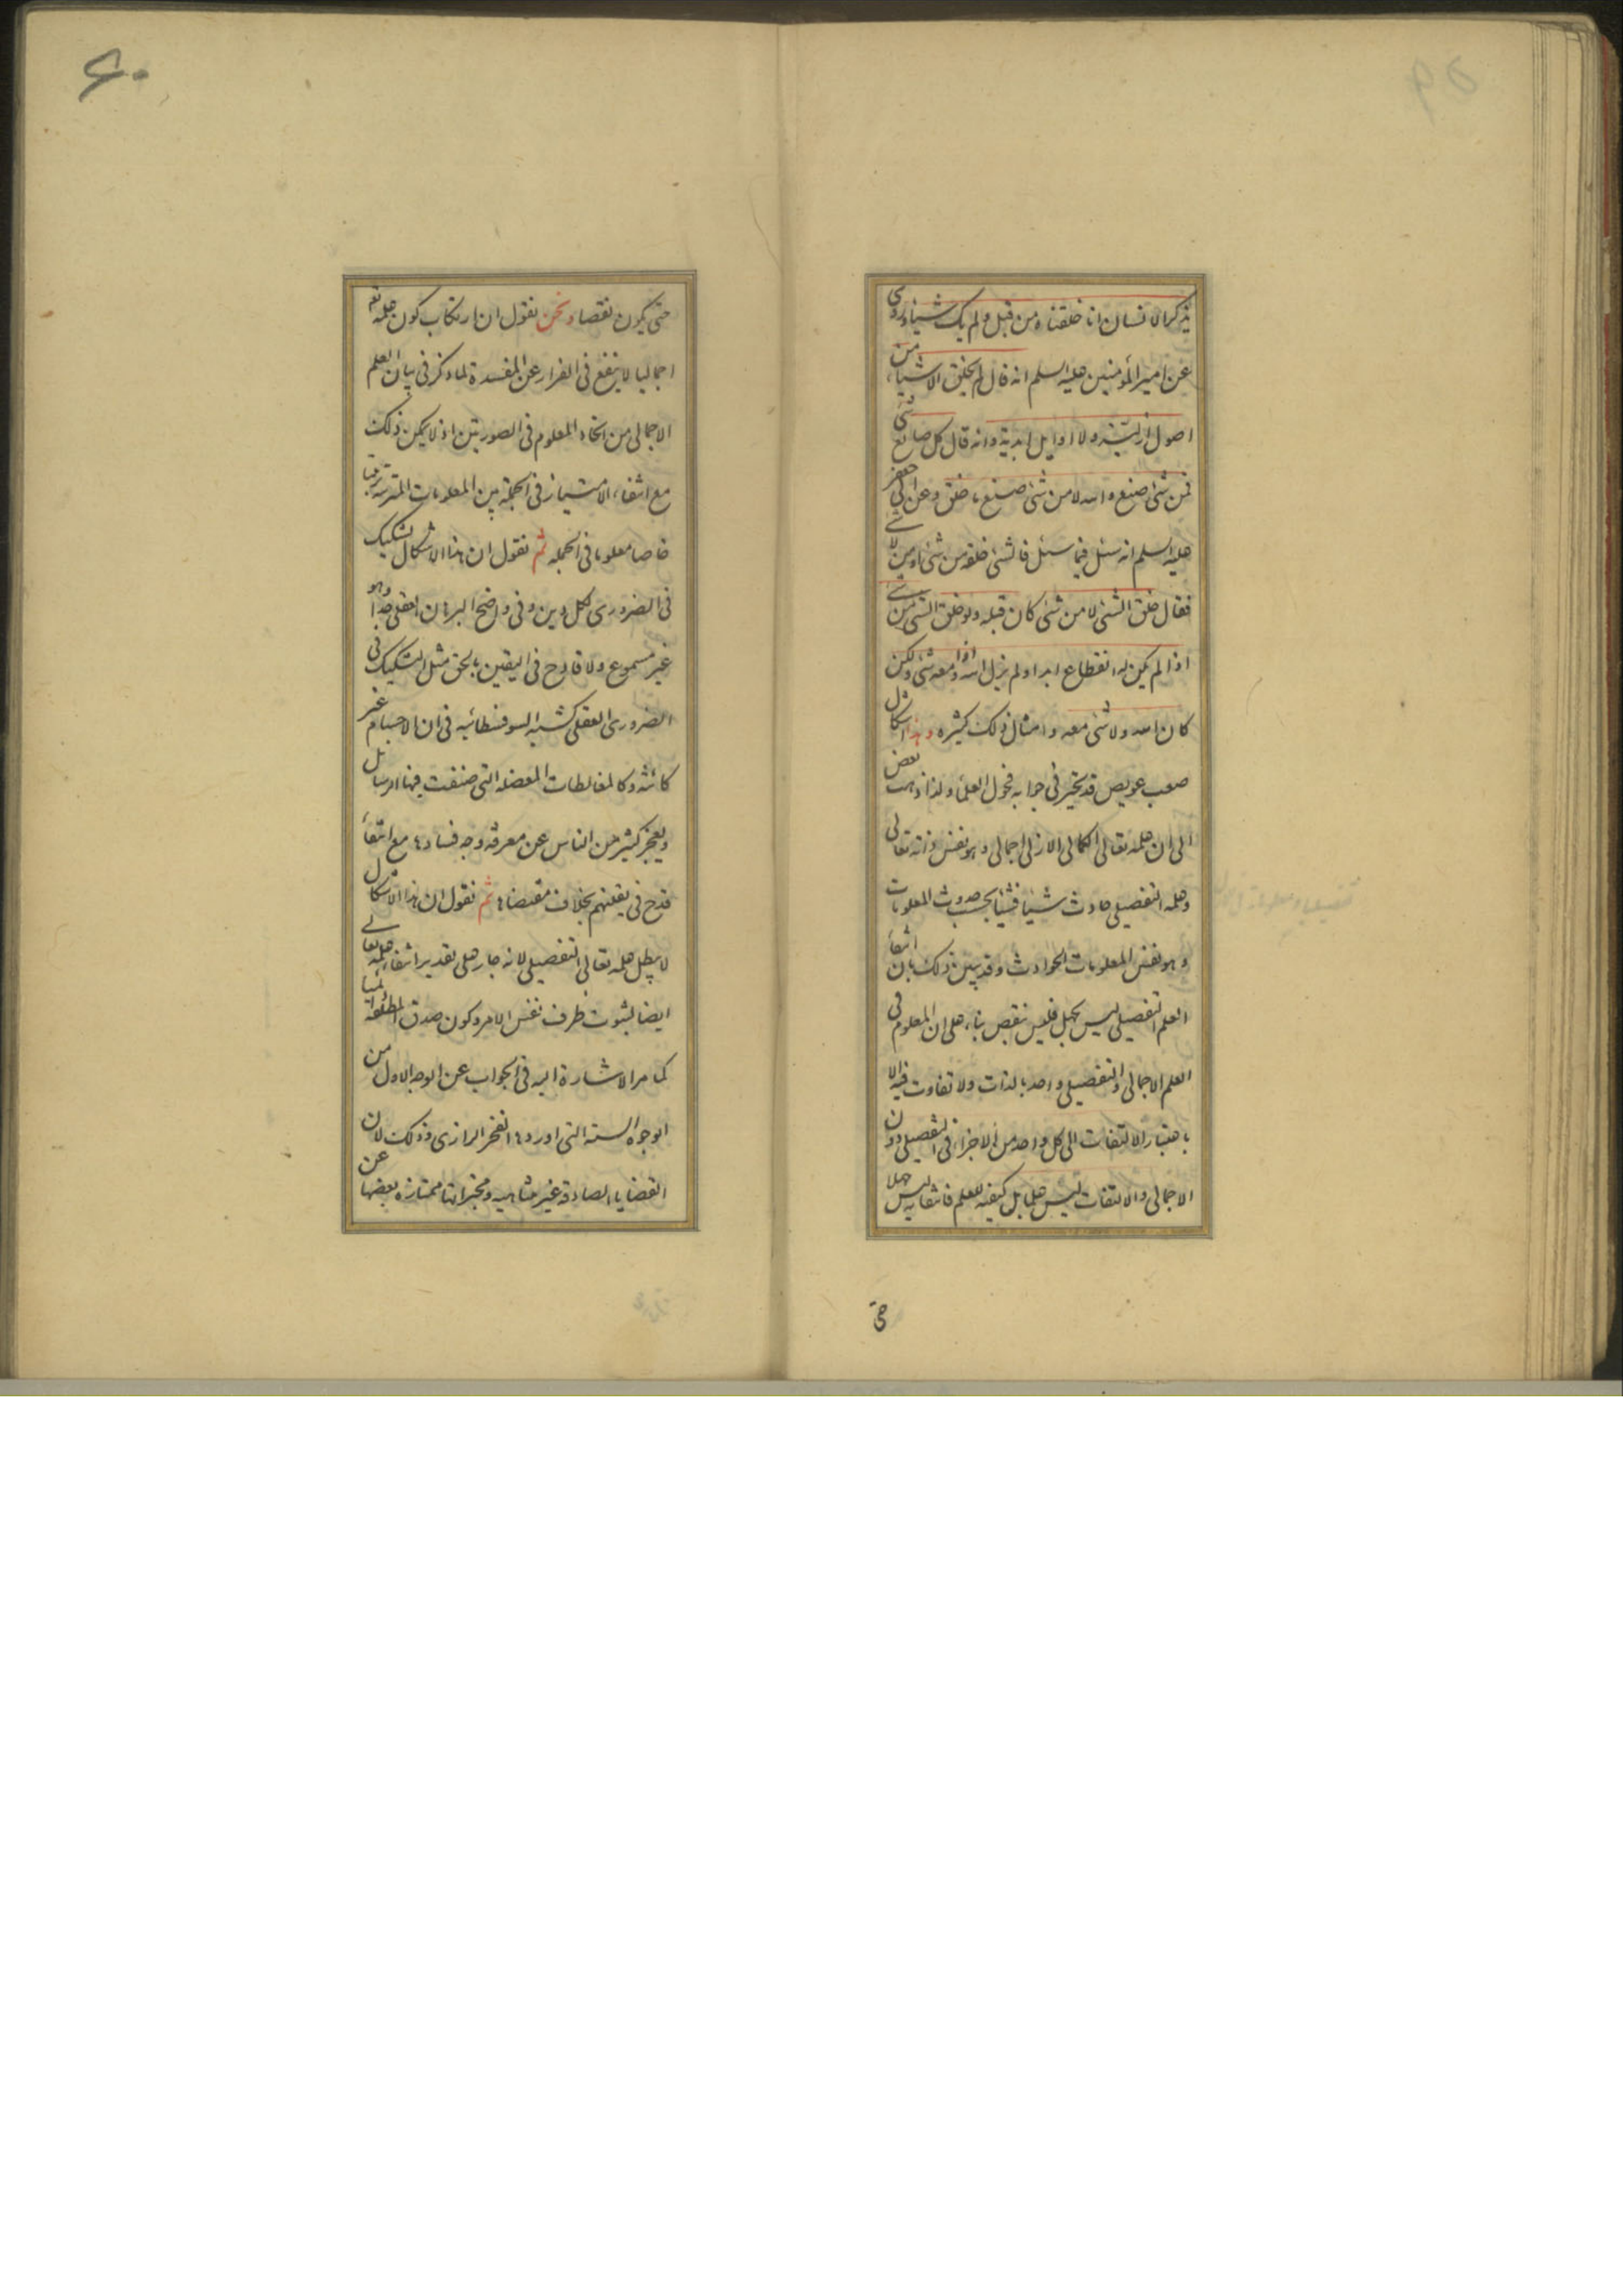 يذكر الانسان انا خلقناه من قبل ولم يك شيئا وروى
عن امير المؤمنين عليه السلم انه قال لم يخلق الاشياء من
اصول ازلية ولا اوايل ابدية وانه قال كل صانع شئ
فمن شئ صنع والله لا من شئ صنع ما خلق وعن ابى جعفر
عليه السلم انه سئل فيما سئل فالشئ خلقه من شئ او من لا شئ
فقال خلق الشئ لا من شئ كان قبله ولو خلق الشئ من شئ
اذا لم يكن له انقطاع ابدا ولم يزل الله اذا ومعه شئ ولكن
كان الله ولا شئ معه وامثال ذلك كثيره وهذا اشكال
صعب عويص قد تحير فى جوابه فحول العلماء ولذا ذهب بعض
الى ان علمه تعالى الكمالى الازلى اجمالى وهو نفس ذاته تعالى
وعلمه التفصيلى حادث شيئا فشيئا بحسب حدوث المعلومات
وهو نفس المعلومات الحوادث وقد يبين ذلك بان انتفاء
العلم التفصيلى ليس بجهل فليس نقص بناء على ان المعلوم فى
العلم الاجمالى والتفصيلى واحد بالذات ولا تفاوت فيه الا
باعتبار الالتفات الى كل واحد من الاجزاء فى التفصيلى دون
الاجمالى والالتفات ليس علما بل كيفيه للعلم فانتفائه ليس جهلا
حتى
٦٠
حتى يكون نقصا ونحن نقول ان ارتكاب كون علمه تع
اجماليا لا ينفع فى الفرار عن المفسدة لما ذكر فى بيان العلم
الاجمالى من اتحاد المعلوم فى الصورتين اذ لا يمكن ذلك
مع انتفاء الامتياز فى الجملة بين المعلومات المترتبه ترتيبا
خاصا معلوما فى الجمله ثم نقول ان هذا الاشكال تشكيك
فى الضرورى لكل دين وفى واضح البرهان العقلى جدا وهو
غير مسموع ولا قادح فى اليقين بالحق مثل التشكيك فى
الضرورى العقلى كشبه السوفسطائيه فى ان الاجسام غير
كائنة وكالمغالطات المعضله التى صنفت فيها الرسايل
ويعجز كثير من الناس عن معرفة وجه فسادها مع انتفاء
قدح فى يقينهم بخلاف مقتضاها ثم نقول ان هذا الاشكال
لا يبطل علمه تعالى التفصيلى لانه جار على تقدير انتفاء علمه تعالى
ايضا لثبوت ظرف نفس الامر وكون صدق المطلقة
كما مر الاشارة اليه فى الجواب عن الوجه الاول من
الوجوه الستة التى اوردها الفخر الرازى وذلك لان
القضايا الصادقة غير متناهيه ومخبراتها ممتازه بعضها عن